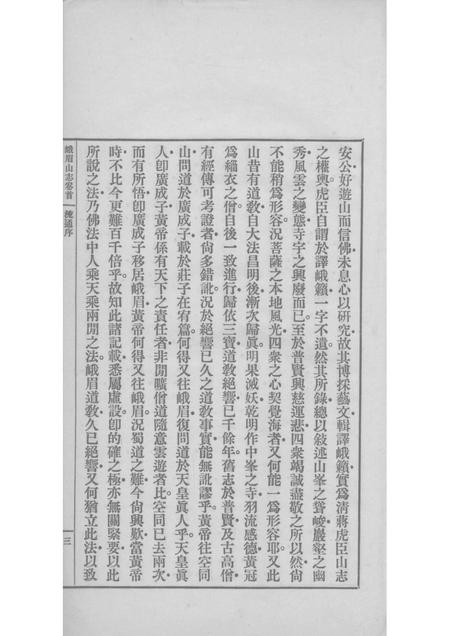 安公好遊山而信佛未息心以研究故其博採藝文輯譯峨籟實爲清蔣虎臣山志
之權輿虎臣自謂於譯峨籟一字不遺然其所錄總以敍述山峯之聳峻巖壑之幽
秀風雲之變態寺宇之興廢而已至於普賢興慈運悲四衆竭誠盡敬之所以然尚
不能稍爲形容況菩薩之本地風光四衆之心契覺海者又何能一爲形容耶又此
山昔有道敎自大法昌明後漸次歸眞明果滅妖乾明作中峯之寺羽流感德黃冠
爲緇衣之僧自後一致進行歸依三寶道敎絕響已千餘年舊志於普賢及古高僧
有經傳可考證者尚多錯訛況於絕響已久之道敎事實能無訛謬乎黃帝往空同
山問道於廣成子載於莊子在宥篇何得又往峨眉復問道於天皇眞人乎天皇眞
人卽廣成子黃帝係有天下之責任者非閒曠僧道隨意雲遊者比空同已去兩次
而有所悟卽廣成子移居峨眉黃帝何得又往峨眉況蜀道之難今尚興歎當黃帝
時不比今更難百千倍乎故知此諸記載悉屬虛設卽的確之極亦無關緊要以此
所說之法乃佛法中人乘天乘兩開之法峨眉道敎久已絕響又何猶立此法以致
峨眉山志卷首 梳通序
三